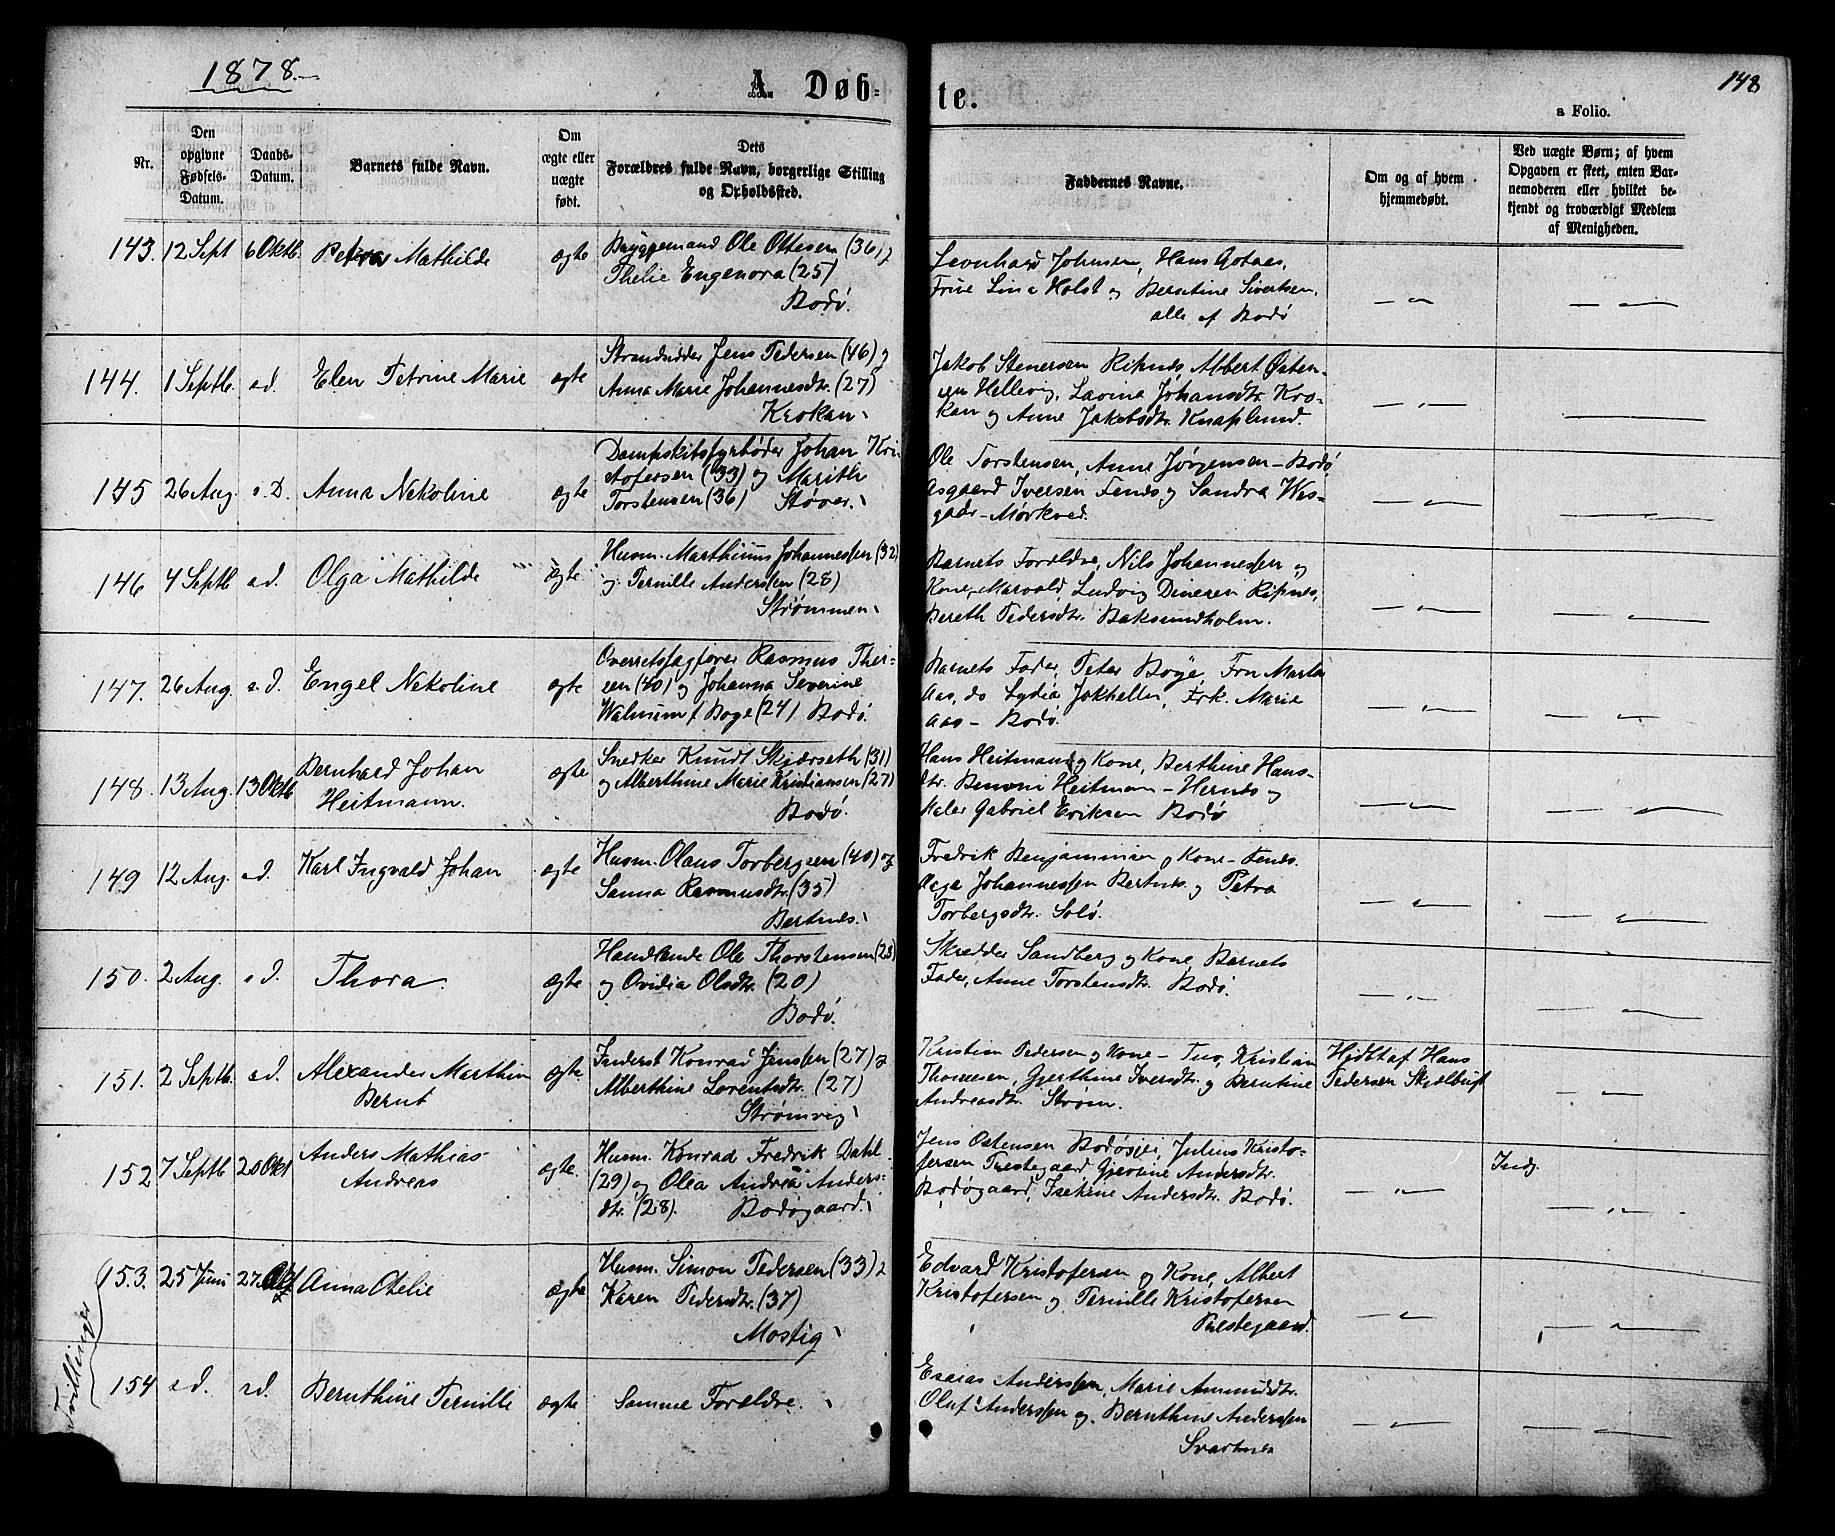 1878.
A. Døb=
te.
148
a Folio.
Nr.
Den
opgivne
Fødsels-
Datum.
Daabs-
Datum.
Barnets fulde Navn.
Om
ægte eller
uægte
født.
Dets
Forældres fulde Navn, borgerlige Stilling
og Opholdssted.
Faddernes Navne.
Om og af hvem
hjemmedøbt.
Ved uægte Børn; af hvem
Opgaven er skeet, enten Bar-
nemoderen eller hvilket be-
kjendt og troværdigt Medlem
af Menigheden.
143. 12 Sept 6 Oktb. Petra Mathilde ægte
Bryggemand Ole Ottesen (36) og
Thelie Engenora (25)
Bodø.
Leonhard Johnsen, Hans Gotaas,
Frue Lina Holst og Berntine Sivertsen,
alle af Bodø
144. 1 Septb. s.d. Elen Petrine Marie ægte
Strandsidder Jens Pedersen (46) og
Anna Marie Johannesdtr. (27)
Krokan.
Jakob Stenersen Ripnes, Albert Østen-
sen Hellevig, Lavina Johansdtr. Kro-
kan og Anne Jakobsdtr. Knaplund.
145 26 Aug. s.D. Anna Nekoline ægte
Dampskibsfyrbøder Johan Kri
stofersen (33) og Marith
Torstensen (36) Støver.
Ole Torstensen, Anne Jørgensen - Bodø
Asgaard Iversen Fenes og Sandra Wes-
gadr - Mørkved.
146 4 Septb s.d. Olga Mathilde ægte
Husm. Marthinus Johannessen (32)
og Pernille Andersken (28)
Strømmen.
Barnets Forældre, Nils Johannessen og
Kone, Marvold, Ludvig Dinesen Ripnes,
Bereth Pedersdtr. Baksundholm.
147. 26 Aug. s.d. Engel Nekoline ægte
Overretssagfører Rasmus Ther-
sen (40) og Johanna Severine
Walnum f. Boye (24) Bodø.
Barnets Fader, Peter Boye, Fru Martha
Aas, do Lydia Jakhelln, Frk. Marie
Aas - Bodø.
148. 13 Aug. 13 Oktb. Bernhard Johan
Heitmann. ægte
Snedker Knudt Skjærseth (31)
og Alberthine Marie Kristiansen (27)
Bodø.
Hans Heitmand og Kone, Berthine Hans-
dtr. Benoni Heitman - Hernes og
Maler Gabriel Eriksen Bodø
149 12 Aug. s.d. Karl Ingvald Johan ægte
Husm. Olaus Torbergsen (40) og
Sanna Rasmusdtr. (35)
Bertnes.
Fredrik Benjaminsen og Kone - Fenes.
Johannessen Bertnes og Petra
Torbergsdtr. Solø.
150. 2 Aug. s.d. Thora. ægte
Handlende Ole Thorstensen (28)
og Ovidia Olsdtr. (20)
Bodø.
Skrædder Sandberg og Kone, Barnets
Fader, Anne Torstensdtr. Bodø.
151. 2 Septb. s.d. Alexander Marthin
Bernt ægte
Inderst Konrad Jenssen (27) og
Alberthine Lorentsdtr. (27)
Strømvig
Kristian Pedersen og Kone - Tuv, Kristian
Thomesen, Gjerthine Iversdtr. og Berntine
Andreasdtr. Strøm.
Hjdbt af Hans
Pedersen Skjælbugt
152 7 Septb 20 Okt Anders Mathias
Andreas ægte.
Husm. Konrad Fredrik Dahl
(29) og Olea Andrea Anders-
dtr. (28). Bodøgaard.
Jens Ostensen Bodøsjø, Julius Kristo-
fersen Prestegaard, Gjertine Andersdtr.
Bodøgaard, Andersdtr. Bodø.
Indg.
153. 25 Juni 27. Okt Anna Otelie ægte
Husm. Simon Pedersen (33) og
Karen Pedersdtr. (37)
Mostig
Edvard Kristofersen og Kone, Albert
Kristofersen og Pernille Kristofersen
Prestegaard.
Tvillinger
154 s.d. s.d. Bernthine Pernille ægte
Samme Forældre.
Esaias Anderssen, Marie Amundsdtr.
Oluf Anderssen og Bernthine Anderssen
Svartnes